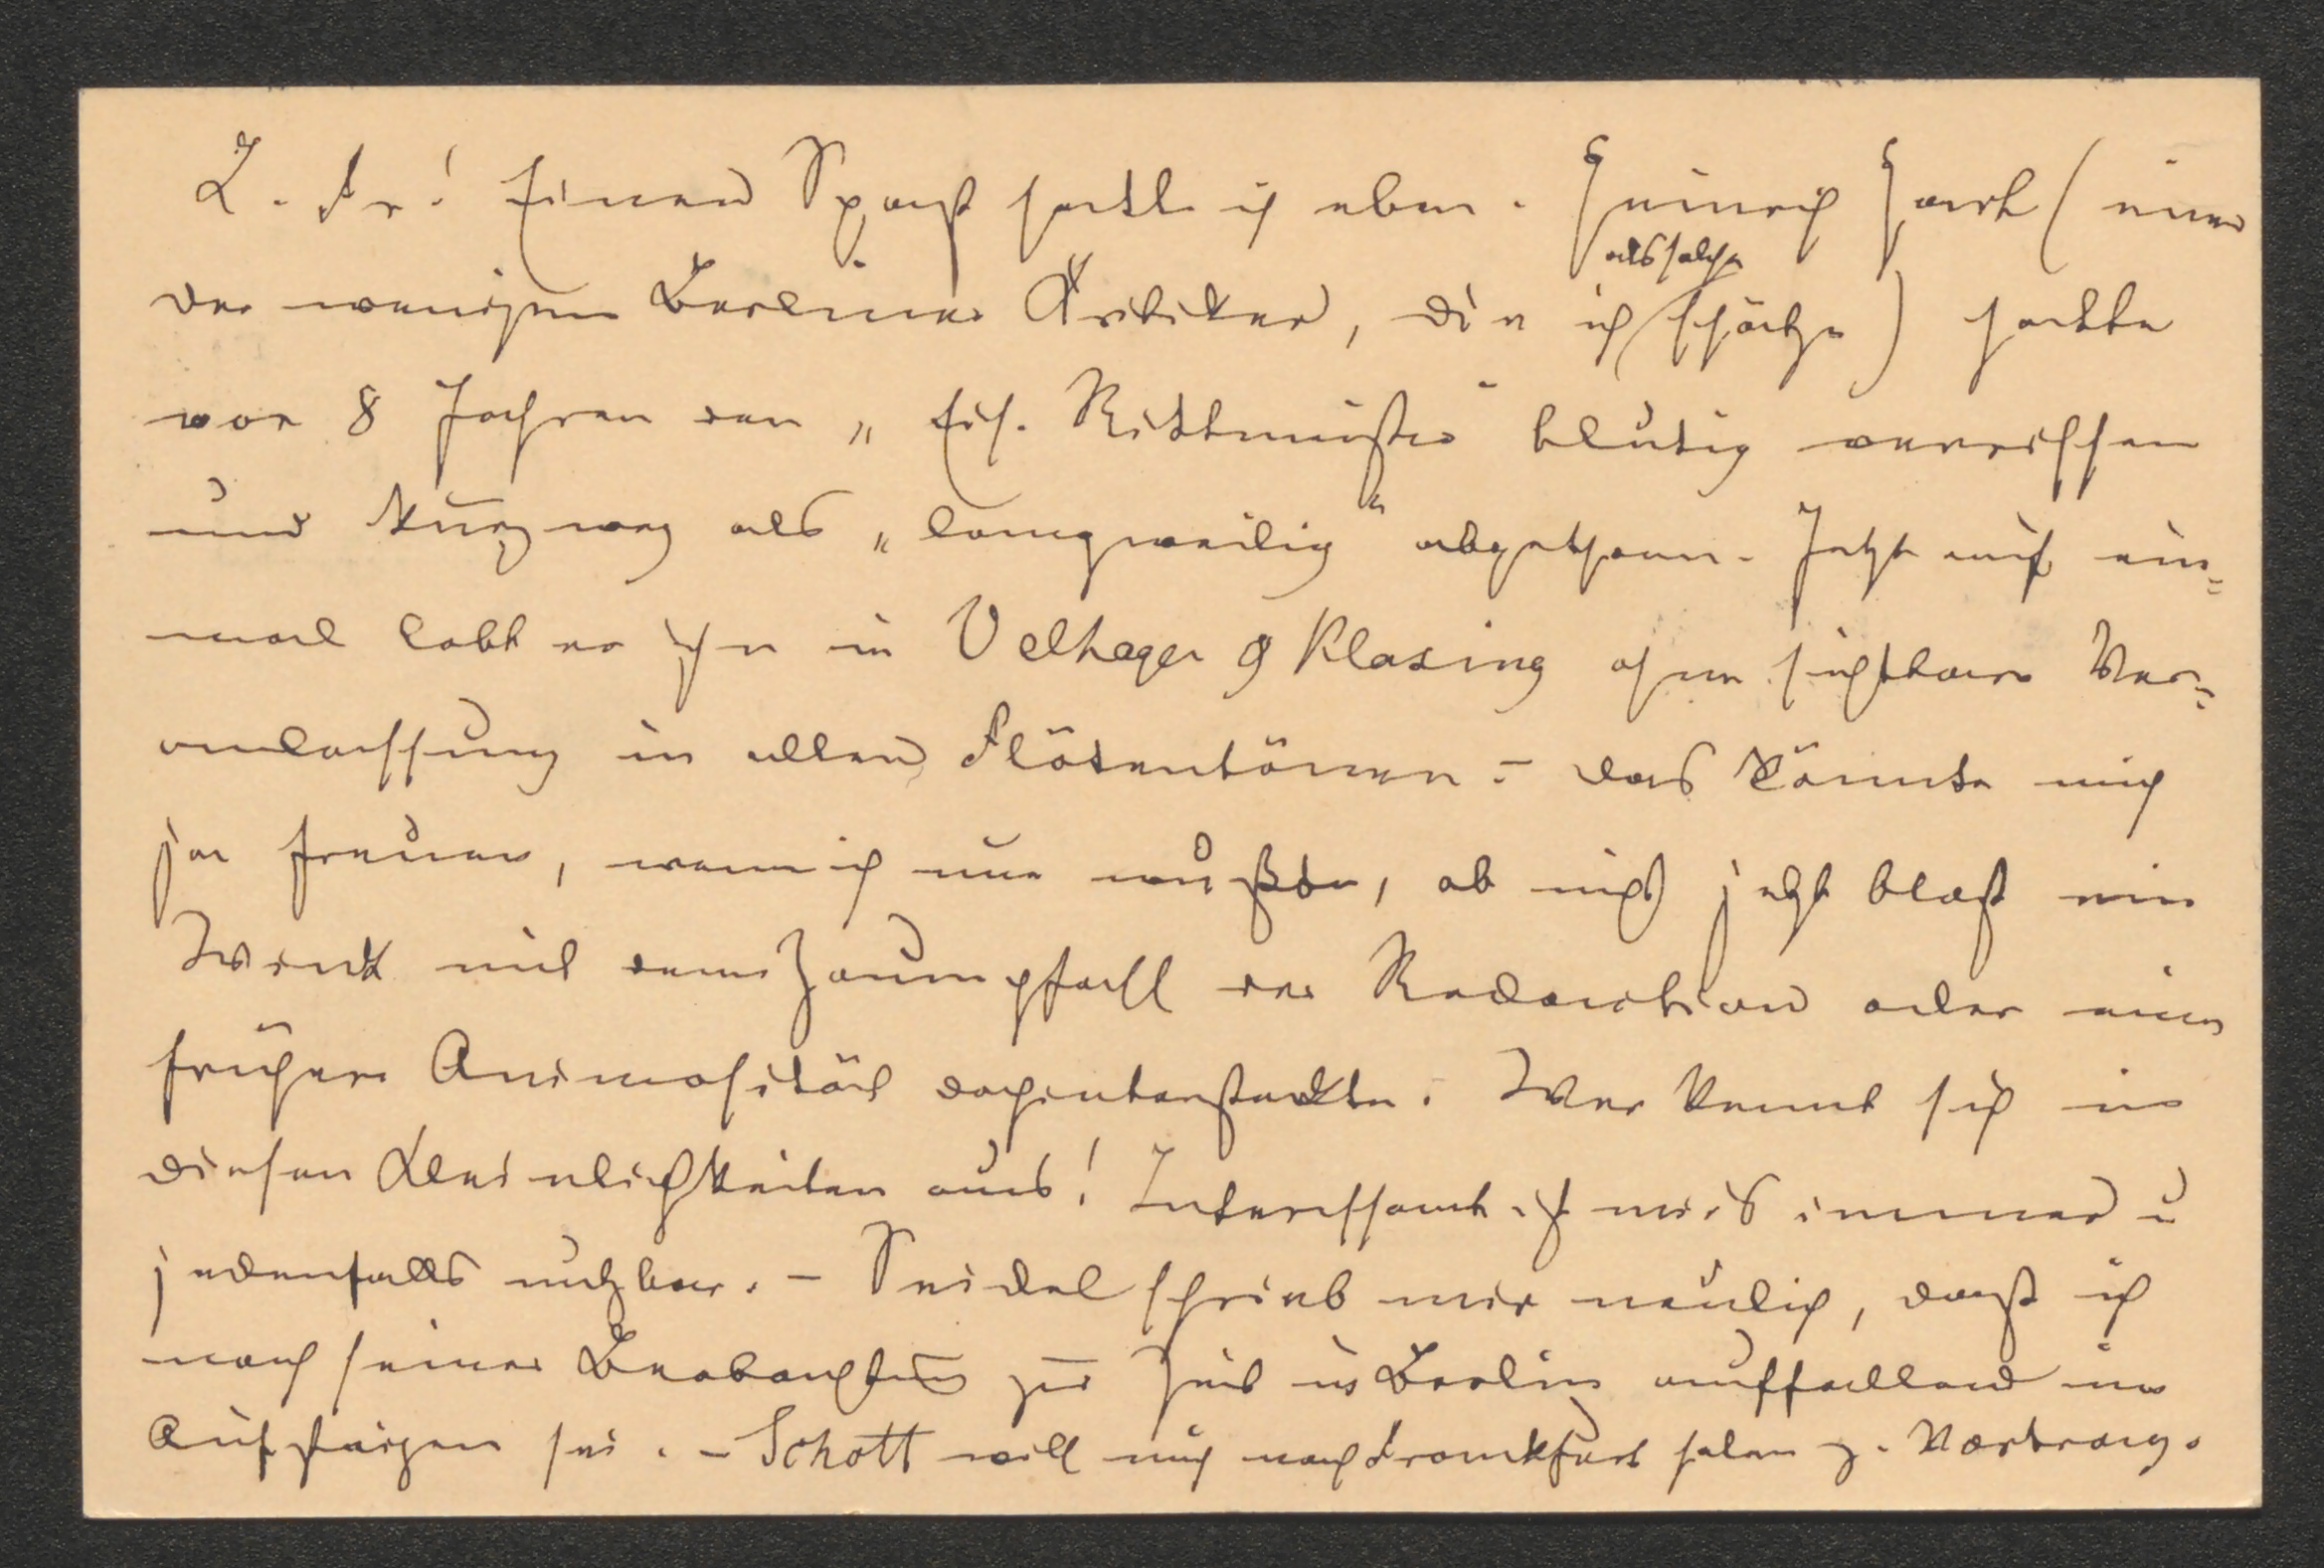 L. Fr! Einen Spaß hatte ich eben. Heinrich Hart (einer
als solche
der wenigen Berliner Kritiker, die ich schätze) hatte
vor 8 Jahren den „Eis. Rittmeister“ blutig verrissen
und kurzweg als „langweilig“ abgethan. Jetzt auf ein=
mal lobt er ihn in Velhagen & Klasing ohne sichtbare Ver=
anlassung in allen Flötentönen – das könnte mich
ja freuen, wenn ich nur wüßte, ob nicht jetzt bloß ein
Wink mit dem Zaunpfahl der Redaction oder eine
frühere Animosität dahintersteckte. Wer kennt sich in
diesen Kleinlichkeiten aus! Interessant ist mirs immer u
jedenfalls nutzbar. – Seidel schrieb mir neulich, daß ich
nach seiner Beobachtung zur Zeit in Berlin auffallend im
Aufsteigen sei. – Schott will mich nach Frankfurt holen z. Vortrag.